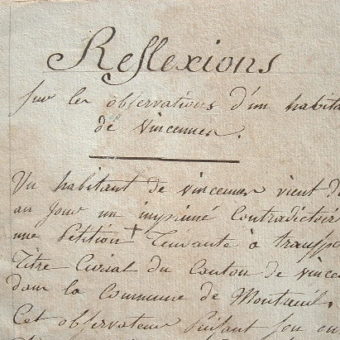 Reflexions
sur les observations d'un habita
de Vincennes.
Un habitant de Vincennes vient d
au jour un imprimé Contradictoir
une Petition + Tendante à transpo
Titre Curial du Canton de Vince
dans la Commune de Montreuil.
Cet observateur